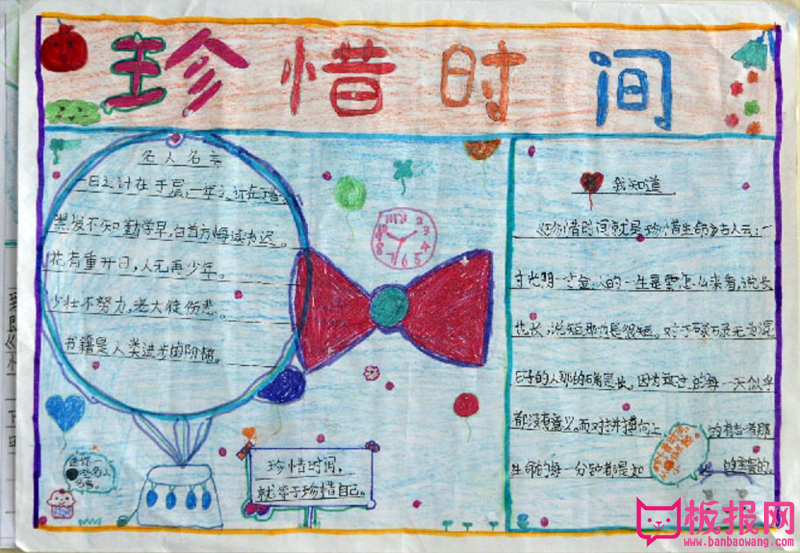 珍惜时间
名人名言
一日之计在于晨,一年之计在于春.
黑发不知勤学早,白首方悔读书迟。
花有重开日,人无再少年。
少壮不努力,老大徒伤悲。
书籍是人类进步的阶梯。
珍惜时间,
就等于珍惜自己。
我知道
珍惜时间就是珍惜生命 古人云:一
寸光阴一寸金,人的一生是要怎么来看,说长
也长,说短那也是很短。对于碌碌无为混
日子的人那的确是长,因为
的每一天似乎
都没有意义。而对拼搏向上
的有志者那
生命的每一分钟都是如
的宝贵的。
板报网
www.banbaowang.com